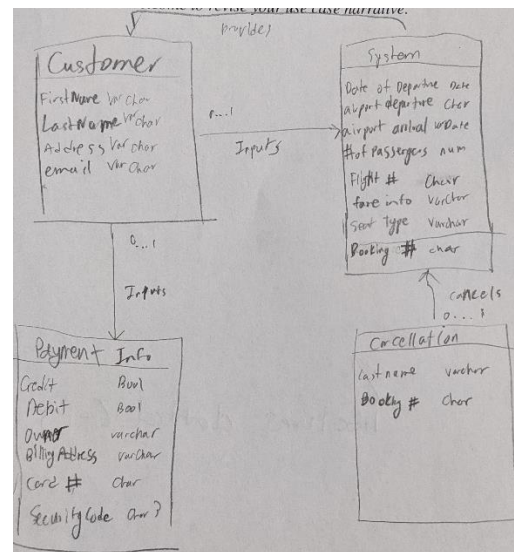 to revise your use case narrative.
provides
Customer
FirstName Varchar
LastName Varchar
Address Varchar
email Varchar
0...1
Inputs
System
Date of Departure Date
airport departure Char
airport arrival
# of Passengers num
Flight # Char
fare info Varchar
Seat Type Varchar
Booking # char
0...1
Inputs
cancels
0...1
Payment Info
Credit Bool
Debit Bool
Owner varchar
Billing Address varchar
Card # Char
Security Code Char ?
Cancellation
last name varchar
Booking # Char